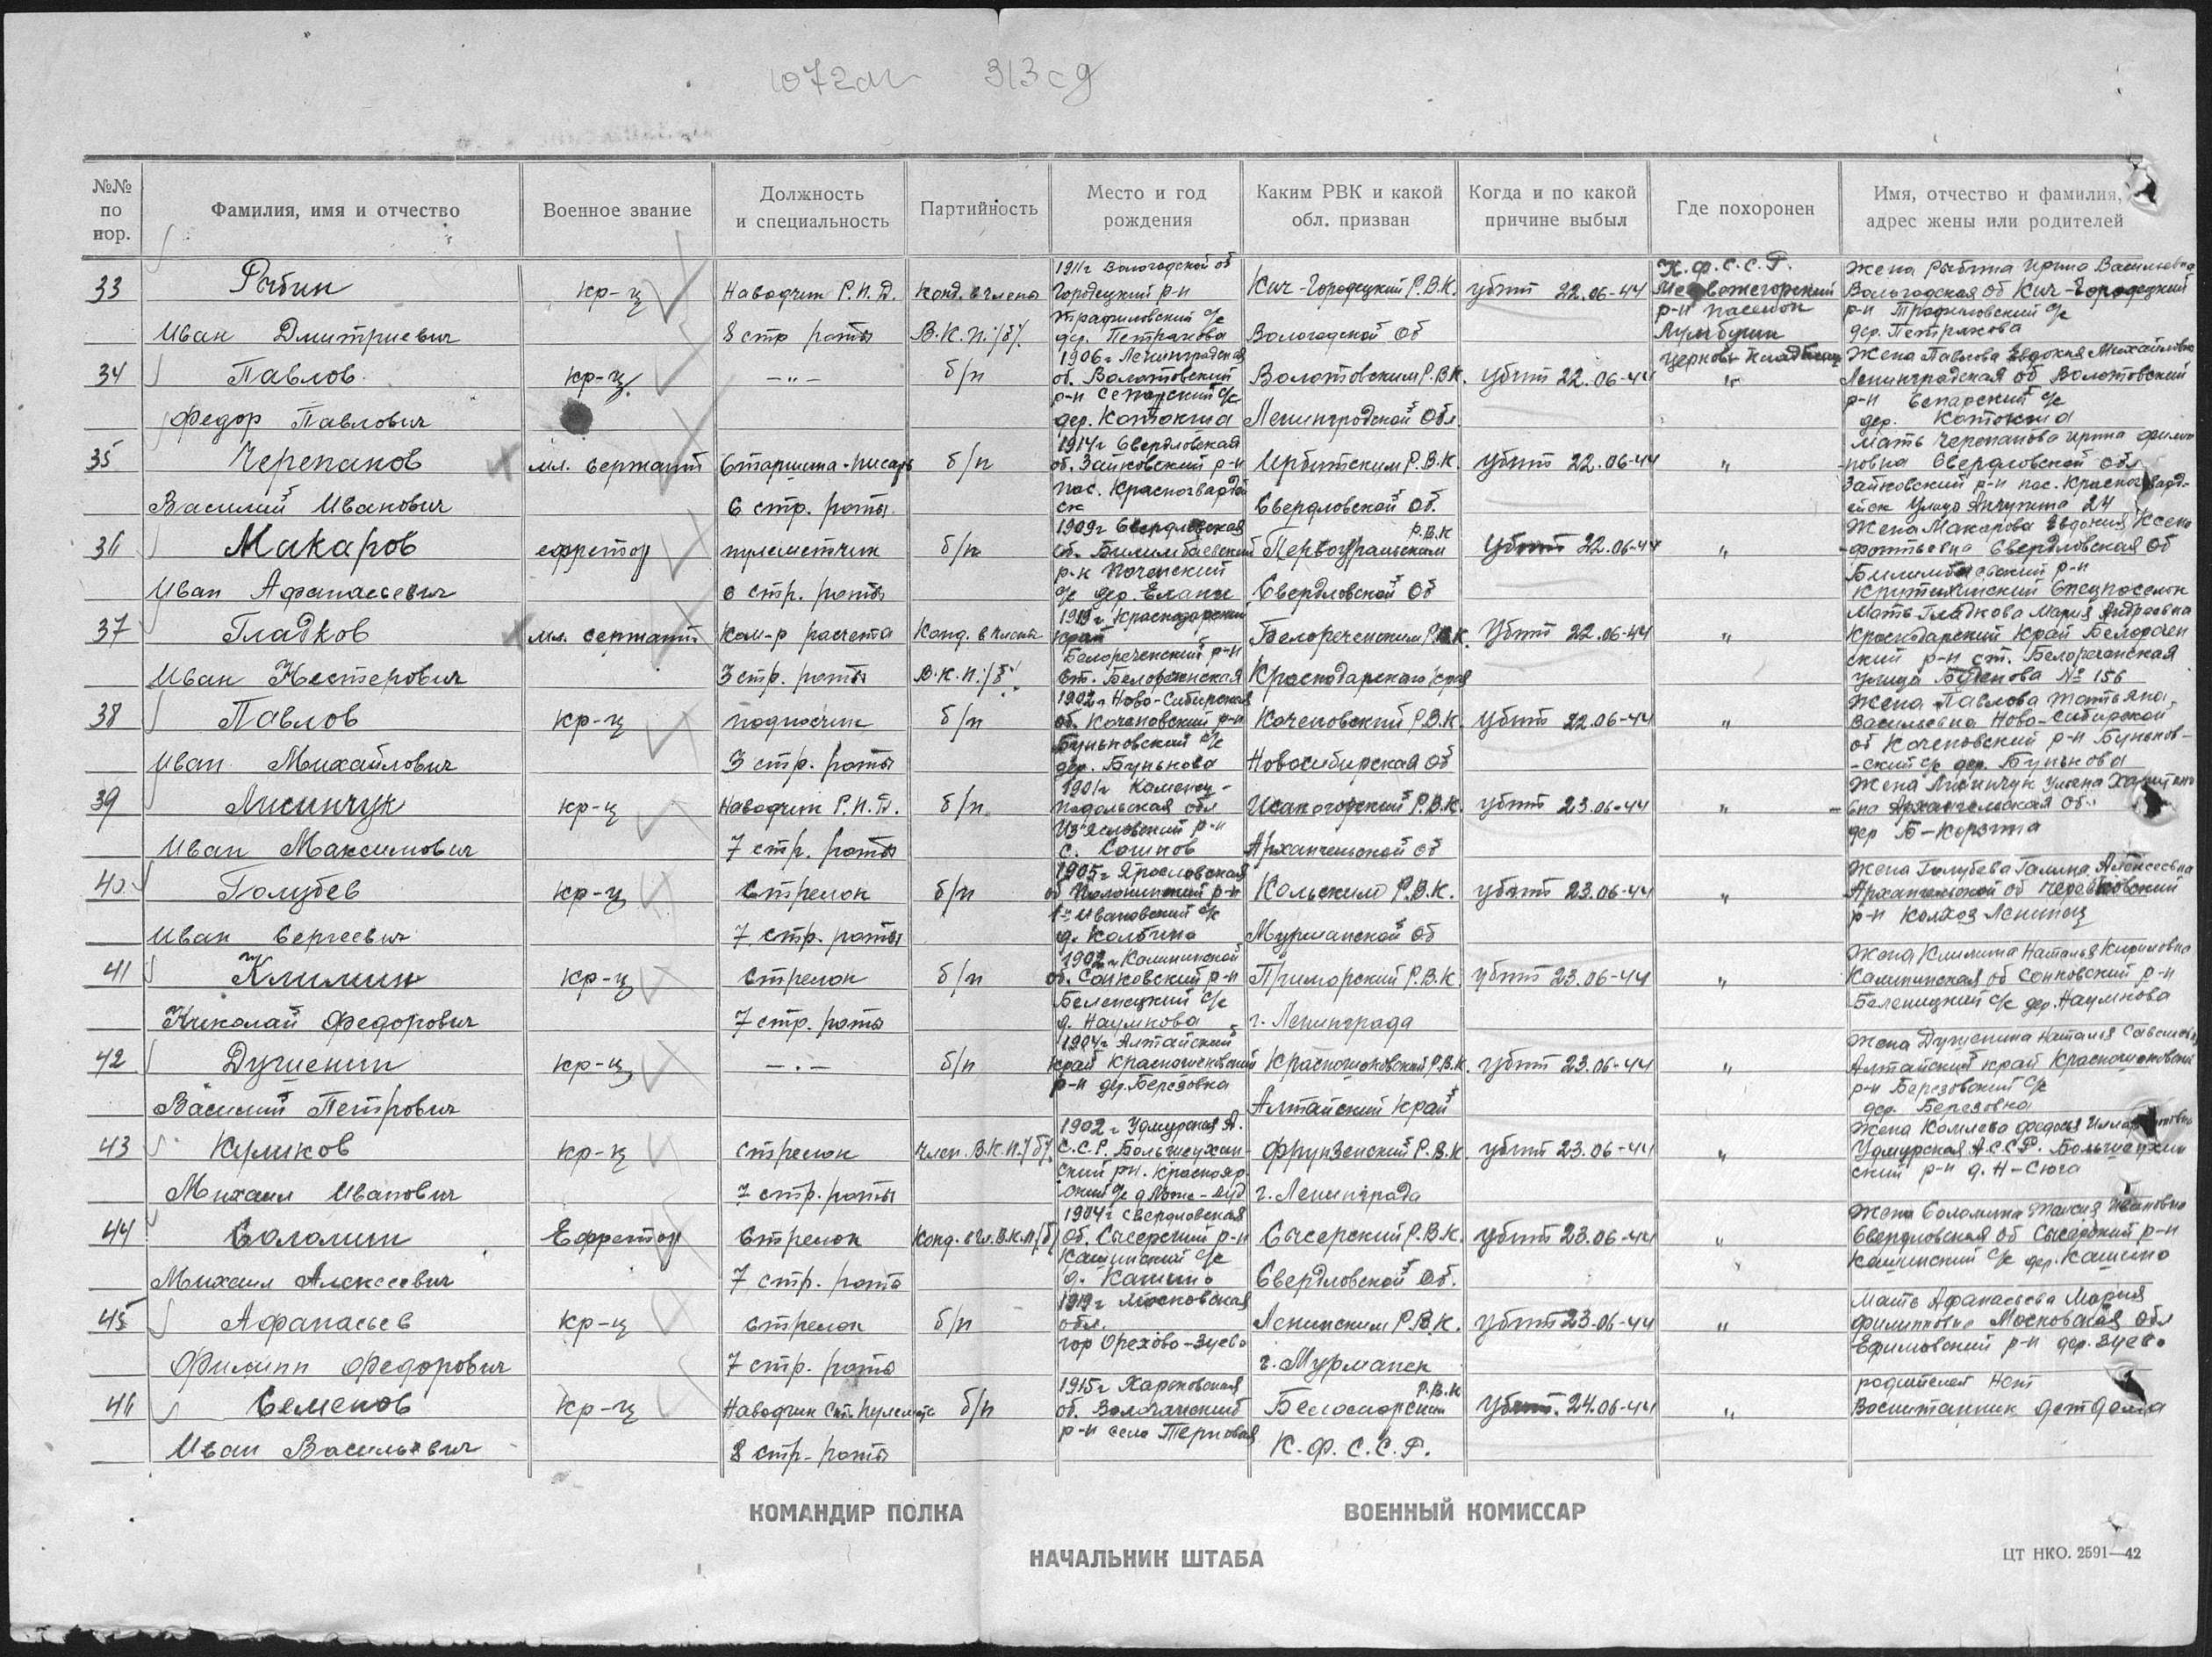 313 сд
№№ по пор.
Фамилия, имя и отчество
Военное звание
Должность и специальность
Партийность
Место и год рождения
Каким РВК и какой обл. призван
Когда и по какой причине выбыл
Где похоронен
Имя, отчество и фамилия, адрес жены или родителей
33
Рыбин
Иван Дмитриевич
кр-ц
Наводчик Р.П.Д.
8 стр роты
Канд. в члены
В.К.П./б/.
1911г Вологодской об
Городецкий р-н
Трафиловский с/с
дер. Петракова
Кич-Городецкий Р.В.К.
Вологодской Об
убит 22.06-44
К.Ф.С.С.Р.
Медвежегорский
р-н поселок
Лумбуши
Жена Рыбина Ирина Васильевна
Вологодская об Кич-Городецкий
р-н Трафиловский с/с
дер. Петракова
34
Павлов
Федор Павлович
кр-ц
-"-
б/п
1906г Ленинградская
об. Волотовский
р-н
дер. Катокина
Волотовским Р.В.К.
Ленинградской Обл
убит 22.06-44
"
Жена Павлова Евдокия Михайловна
Ленинградская об Волотовский
р-н
дер. Катокина
35
Черепанов
Василий Иванович
мл. сержант
Старшина-писарь
6 стр. роты
б/п
1914г Свердловская
об. Зайковский р-н
пос. Красногвардей
ск
Ирбитским Р.В.К.
Свердловской Об.
убит 22.06-44
"
Мать Черепанова Ирина Филип
-повна Свердловской обл
Зайковский р-н пос. Красногвард-
ейск Улица 24
36
Макаров
Иван Афанасьевич
ефрейтор
пулеметчик
6 стр. роты
б/п
1909г Свердловская
об. Билимбаевский
р-н Поченский
с/с дер. Еланы
Р.В.К
Первоуральским
Свердловской Об
Убит 22.06-44
"
Жена Макарова Евдокия Ксено
-фонтьевна Свердловская об
Билимбаевский р-н
Спецпоселок
37
Гладков
Иван Нестерович
мл. сержант
Ком-р расчета
3 стр. роты
Канд. в члены
В.К.П./б/
1919г Краснодарский
край
Белореченский р-н
ст. Белореченская
Белореченским Р.В.К.
Краснодарского края
Убит 22.06-44
"
Мать Гладкова Мария Андреевна
Краснодарский Край Белоречен
ский р-н ст. Белореченская
улица Буденова № 156
38
Павлов
Иван Михайлович
кр-ц
подносчик
3 стр. роты
б/п
1902г Ново-Сибирская
об. Коченовский р-н
Буньковский с/с
дер. Бунькова
Коченовский Р.В.К.
Новосибирская об
убит 22.06-44
"
Жена Павлова Татьяна
Васильевна Ново-Сибирской
об Коченовский р-н Буньков-
-ский с/с дер. Бунькова
39
Лисинчук
Иван Максимович
кр-ц
Наводчик Р.П.Д.
7 стр. роты
б/п
1901г Каменец-
подольская обл
Из'ясловский р-н
с. Сошнов
Исакогорский Р.В.К.
Архангельской об
убит 23.06-44
"
Жена Лисинчук Ульяна
Архангельская Об.
дер Б-Корзиха
40
Голубев
Иван Сергеевич
кр-ц
Стрелок
7 стр. роты
б/п
1905г Ярославская
об р-н
1й Ивановский с/с
д. Колбино
Кольским Р.В.К.
Мурманской Об
убит 23.06-44
"
Жена Голубева Галина Алексеевна
Архангельской об Черевковский
р-н Колхоз Ленинец
41
Климин
Николай Федорович
кр-ц
Стрелок
7 стр. роты
б/п
1902г Калининской
об. Сонковский р-н
Беленецкий с/с
д. Наумкова
Приморский Р.В.К.
г. Ленинграда
убит 23.06-44
"
Жена Климина Наталья Кириловна
Калининская об Сонковский р-н
Беленицкий с/с дер. Наумкова
42
Душенин
Василий Петрович
кр-ц
-"-
б/п
1904г Алтайский
край Краснощековский
р-н дер. Березовка
Краснощековский Р.В.К.
Алтайский край
убит 23.06-44
"
Жена Душенина Наталия
Алтайский край Краснощековский
р-н Березовский с/с
дер. Березовка
43
Куликов
Михаил Иванович
кр-ц
стрелок
7 стр. роты
член. В.К.П./б/.
1902г Удмурская А.
С.С.Р. Большеучин
ский рн. Краснояр
ский с/с
Фрунзенский Р.В.К.
г. Ленинграда
убит 23.06-44
"
Жена Федосья
Удмурская А.С.С.Р. Большеучин
ский р-н д. Н-Сюга
44
Соломин
Михаил Алексеевич
Ефрейтор
Стрелок
7 стр. роты
Канд. в чл. В.К.П/б/
1904г Свердловская
об. Сысерский р-н
Кашинский с/с
д. Кашино
Сысерский Р.В.К.
Свердловской Об.
убит 23.06-44
"
Жена Соломина Таисия Ивановна
Свердловская об Сысерский р-н
Кашинский с/с дер. Кашино
45
Афанасьев
Филипп Федорович
кр-ц
стрелок
7 стр. роты
б/п
1919г Московская
обл.
гор Орехово-Зуево
Ленинским Р.В.К.
г. Мурманск
убит 23-06-44
"
Мать Афанасьева Мария
Филипповна Московская Обл
р-н дер. Зуево
46
Семенов
Иван Васильевич
кр-ц
Наводчик Ст. Пулемета
8 стр. роты
б/п
1915г Харьковская
об. Волчанский
р-н село Терновая
Р.В.К
Беломорским
К.Ф.С.С.Р.
Убит. 24.06-44
"
родителей нет
Воспитанник детдома
КОМАНДИР ПОЛКА
ВОЕННЫЙ КОМИССАР
НАЧАЛЬНИК ШТАБА
ЦТ НКО. 2591—42